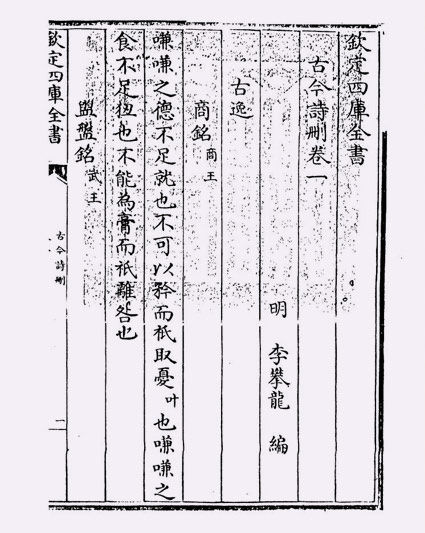 欽定四庫全書
古今詩刪卷一
明 李攀龍 編
古逸
商銘 商王
嗛嗛之德不足就也不可以矜而祇取憂叶也嗛嗛之
食不足狃也不能為膏而祇離咎也
盥盤銘 武王
欽定四庫全書
古今詩刪
一